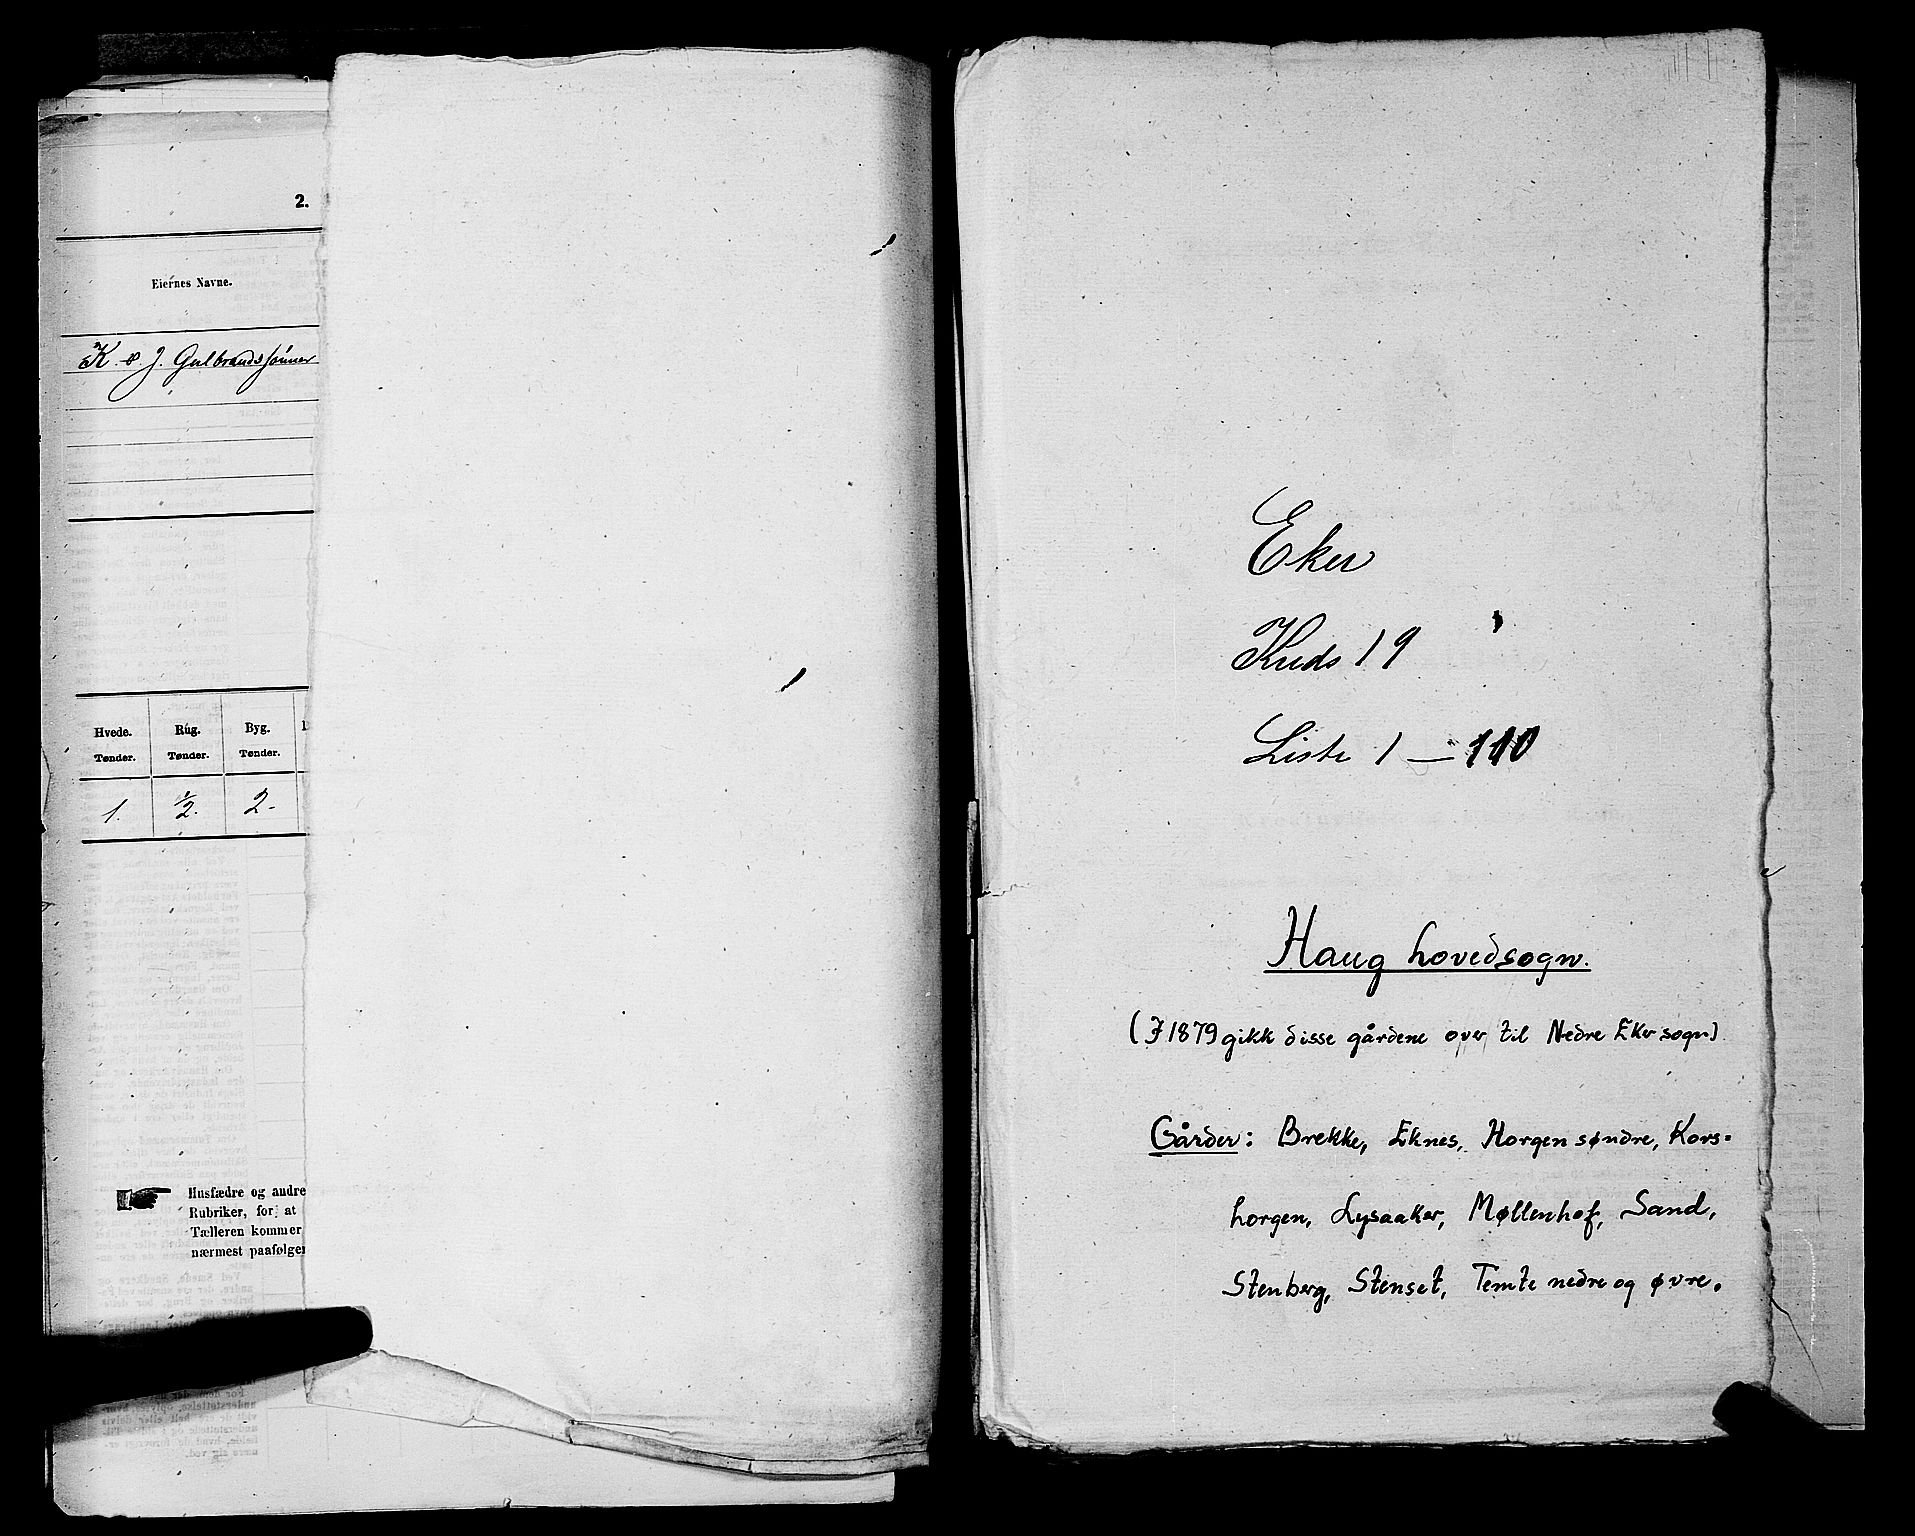 2.
Eiernes Navne.
K. & J. Gulbrandssønner
Hvede. Rug. Byg.
Tønder. Tønder. Tønder.
1. ½. 2-
Husfædre og andre
Rubriker, for at
Tælleren kommer
nærmest paafølgen
Eker
Kreds 19
Liste 1 — 110
Haug hovedsogn.
(I 1879 gikk disse gårdene over til Nedre Eker sogn)
Gårder: Brekke, Eknes, Horgen søndre, Kors=
horgen, Lysaaker, Møllenhof, Sand,
Stenberg, Stenset, Temte nedre og øvre.